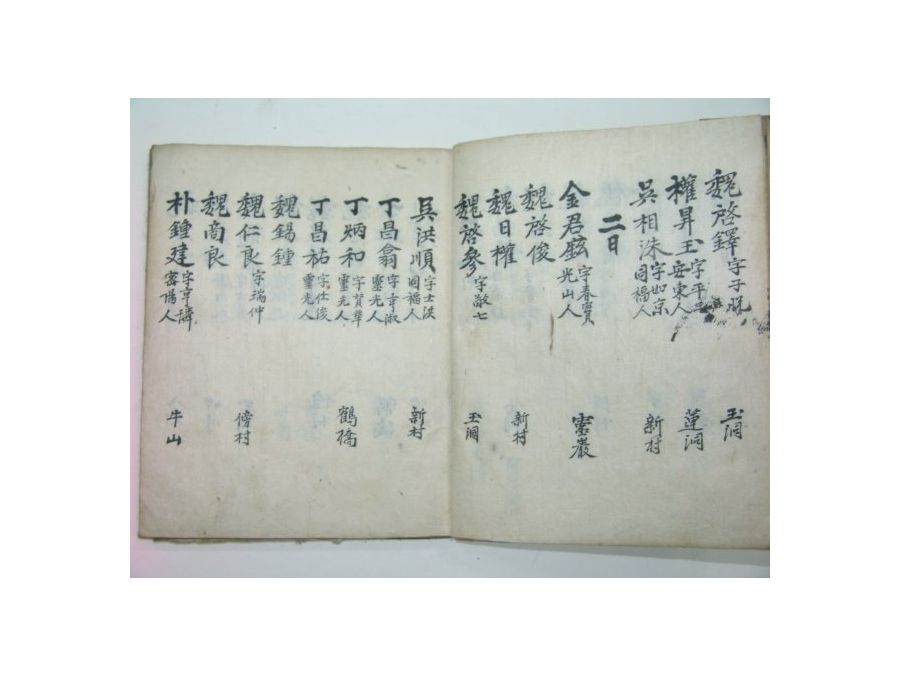 魏啓鐸 字子 玉洞
權昇玉 字平 安東人 蓮洞
吳相洙 字如京 同福人 新村
二日
金君 字春實 光山人 靈巖
魏啓俊
魏日權 新村
魏啓參 字敬七 玉洞
吳洪順 字士洪 同福人 新村
丁昌翕 字章淑 靈光人
丁炳和 字贊華 靈光人 鶴橋
丁昌祐 字仕俊 靈光人
魏錫鍾
魏仁良 字瑞仲 傍村
魏商良
朴鍾建 字亨 密陽人 牛山